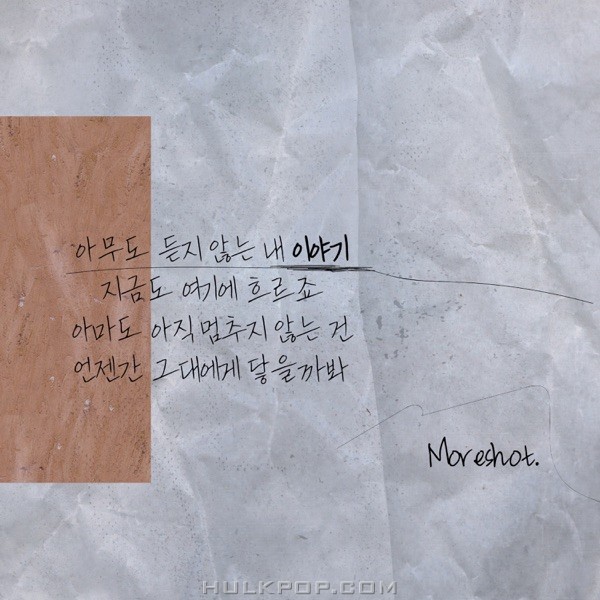 아무도 듣지 않는 내 이야기
지금도 여기에 흐르죠
아마도 아직 멈추지 않는 건
언젠간 그대에게 닿을까봐
Moreshot.
HULKPOP.COM